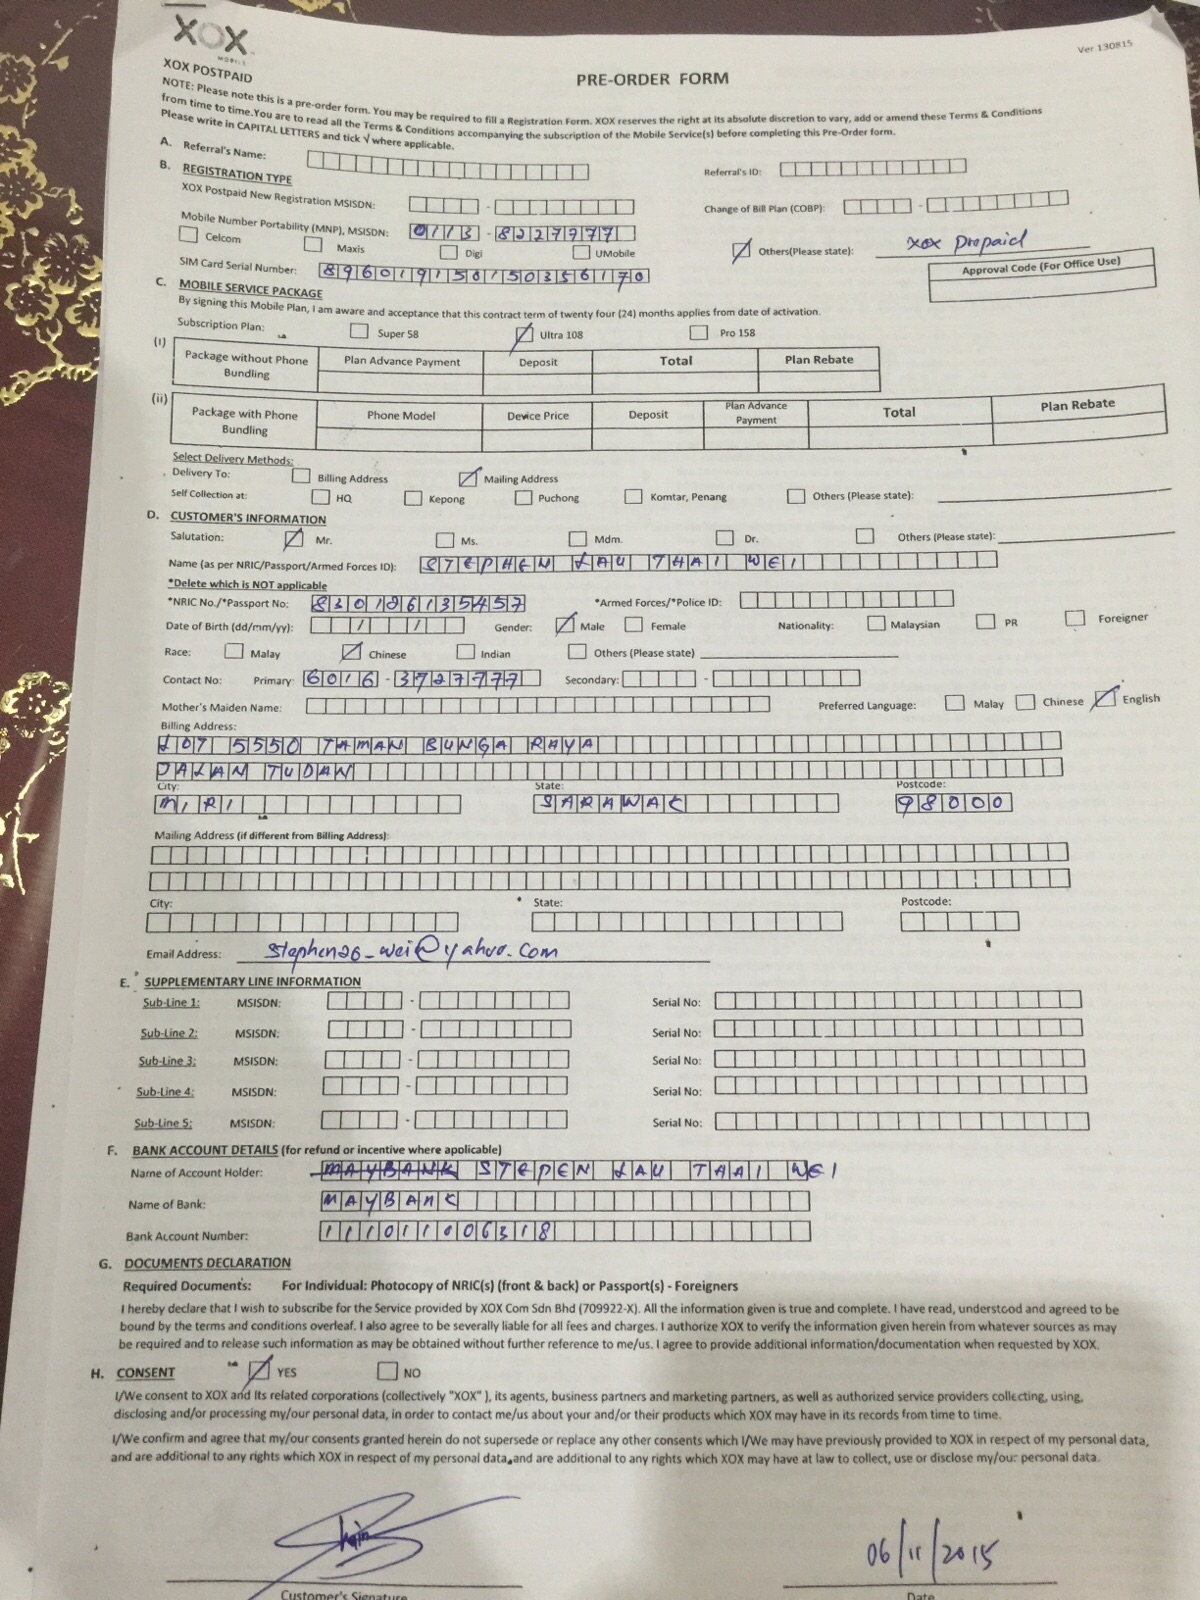 XOX
MOBILE
Ver 130815
XOX POSTPAID
PRE-ORDER FORM
NOTE: Please note this is a pre-order form. You may be required to fill a Registration Form. XOX reserves the right at its absolute discretion to vary, add or amend these Terms & Conditions
from time to time.You are to read all the Terms & Conditions accompanying the subscription of the Mobile Service(s) before completing this Pre-Order form.
Please write in CAPITAL LETTERS and tick √ where applicable.
A. Referral's Name: Referral's ID:
B. REGISTRATION TYPE
XOX Postpaid New Registration MSISDN: - Change of Bill Plan (COBP): -
Mobile Number Portability (MNP), MSISDN: 0113 - 8227777
Celcom Maxis Digi UMobile Others(Please state): xox prepaid
SIM Card Serial Number: 896019150150356170
Approval Code (For Office Use)
C. MOBILE SERVICE PACKAGE
By signing this Mobile Plan, I am aware and acceptance that this contract term of twenty four (24) months applies from date of activation.
Subscription Plan: Super 58 Ultra 108 Pro 158
(i) Package without Phone Bundling Plan Advance Payment Deposit Total Plan Rebate
(ii) Package with Phone Bundling Phone Model Device Price Deposit Plan Advance Payment Total Plan Rebate
Select Delivery Methods:
Delivery To: Billing Address Mailing Address
Self Collection at: HQ Kepong Puchong Komtar, Penang Others (Please state):
D. CUSTOMER'S INFORMATION
Salutation: Mr. Ms. Mdm. Dr. Others (Please state):
Name (as per NRIC/Passport/Armed Forces ID): STEPHEN LAU THAI WEI
*Delete which is NOT applicable
*NRIC No./*Passport No: 830126135457 *Armed Forces/*Police ID:
Date of Birth (dd/mm/yy): / / Gender: Male Female Nationality: Malaysian PR Foreigner
Race: Malay Chinese Indian Others (Please state)
Contact No: Primary: 6016 - 3727777 Secondary: -
Mother's Maiden Name: Preferred Language: Malay Chinese English
Billing Address:
LOT 5550 TAMAN BUNGA RAYA
JALAN TUDAN
City: State: Postcode:
MIRI SARAWAK 98000
Mailing Address (if different from Billing Address):
City: State: Postcode:
Email Address: stephen26_wei@yahoo.com
E. SUPPLEMENTARY LINE INFORMATION
Sub-Line 1: MSISDN: - Serial No:
Sub-Line 2: MSISDN: - Serial No:
Sub-Line 3: MSISDN: - Serial No:
Sub-Line 4: MSISDN: - Serial No:
Sub-Line 5: MSISDN: - Serial No:
F. BANK ACCOUNT DETAILS (for refund or incentive where applicable)
Name of Account Holder: MAYBANK STEPEN LAU THAI WEI
Name of Bank: MAYBANK
Bank Account Number: 111011006318
G. DOCUMENTS DECLARATION
Required Documents: For Individual: Photocopy of NRIC(s) (front & back) or Passport(s) - Foreigners
I hereby declare that I wish to subscribe for the Service provided by XOX Com Sdn Bhd (709922-X). All the information given is true and complete. I have read, understood and agreed to be
bound by the terms and conditions overleaf. I also agree to be severally liable for all fees and charges. I authorize XOX to verify the information given herein from whatever sources as may
be required and to release such information as may be obtained without further reference to me/us. I agree to provide additional information/documentation when requested by XOX.
H. CONSENT YES NO
I/We consent to XOX and its related corporations (collectively "XOX" ), its agents, business partners and marketing partners, as well as authorized service providers collecting, using,
disclosing and/or processing my/our personal data, in order to contact me/us about your and/or their products which XOX may have in its records from time to time.
I/We confirm and agree that my/our consents granted herein do not supersede or replace any other consents which I/We may have previously provided to XOX in respect of my personal data,
and are additional to any rights which XOX in respect of my personal data,and are additional to any rights which XOX may have at law to collect, use or disclose my/our personal data.
06/11/2015
Customer's Signature Date